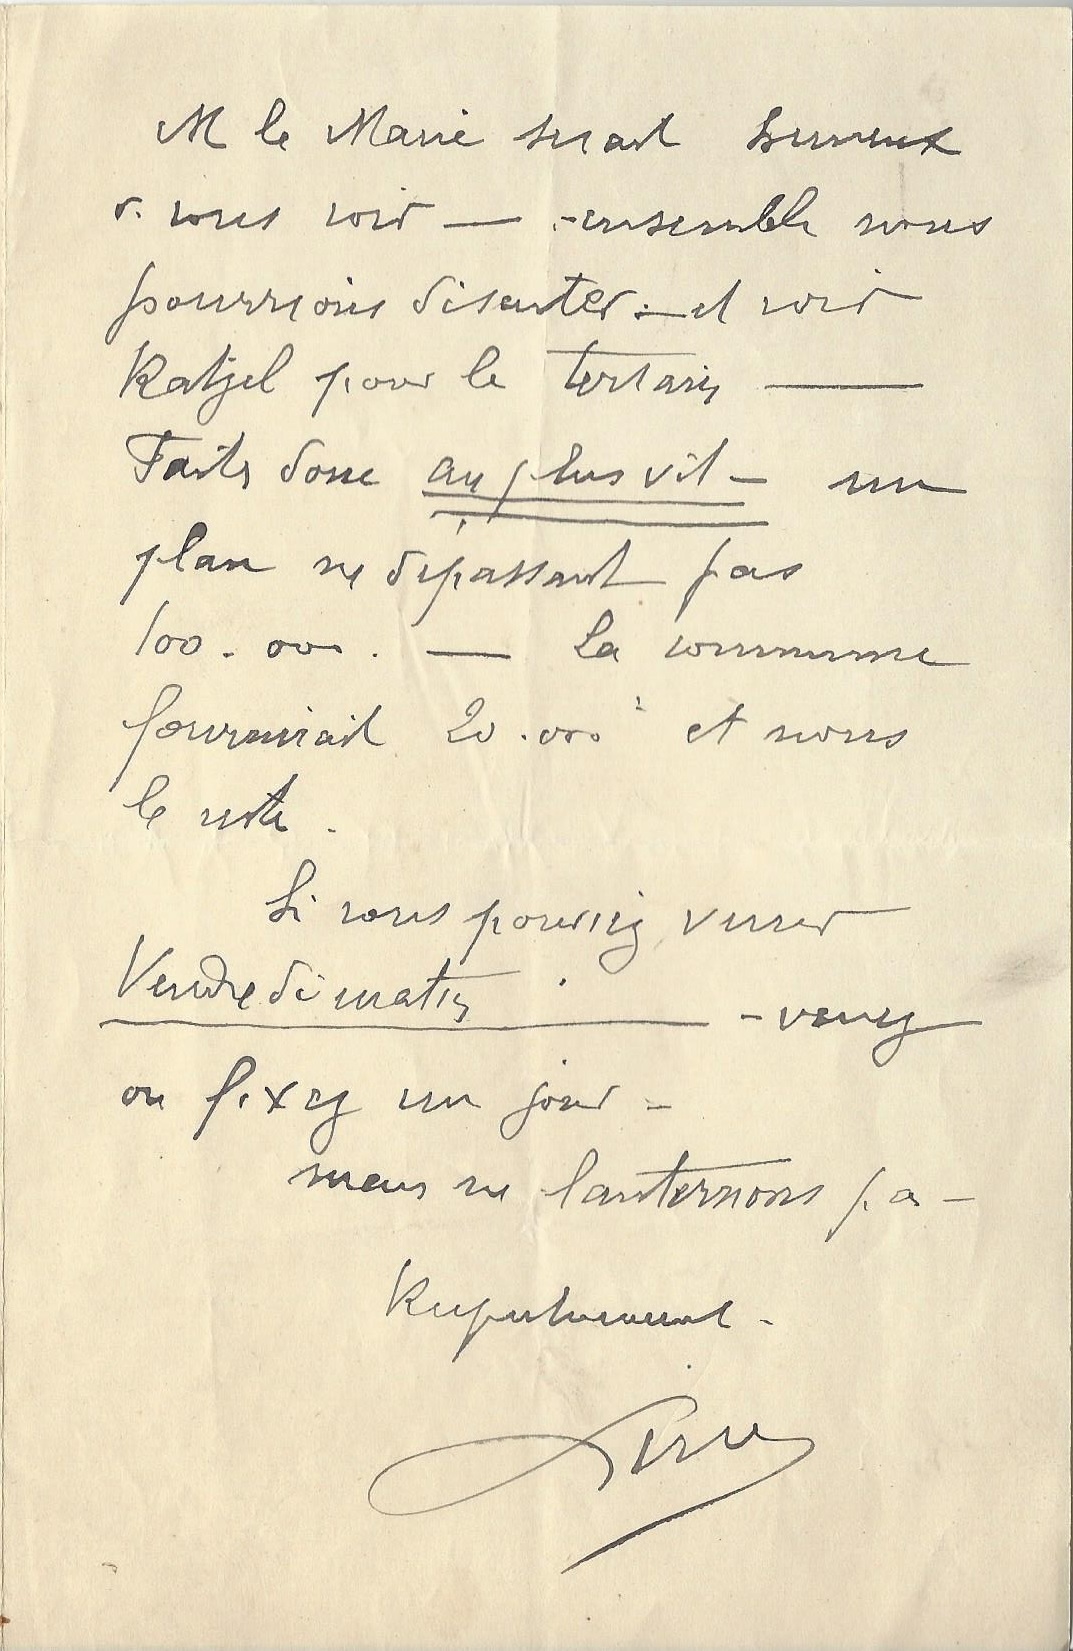 M le Maire serait heureux
de vous voir — ensemble nous
pourrions discuter — et voir
pour le
Faites donc au plus vite — un
plan ne dépassant pas
100.000. — La commune
fournirait 20.000 et nous
le reste.
Si vous pouviez venir
Vendredi matin — venez
ou fixez un jour —
mais ne lanternons pas —
Respectueusement.